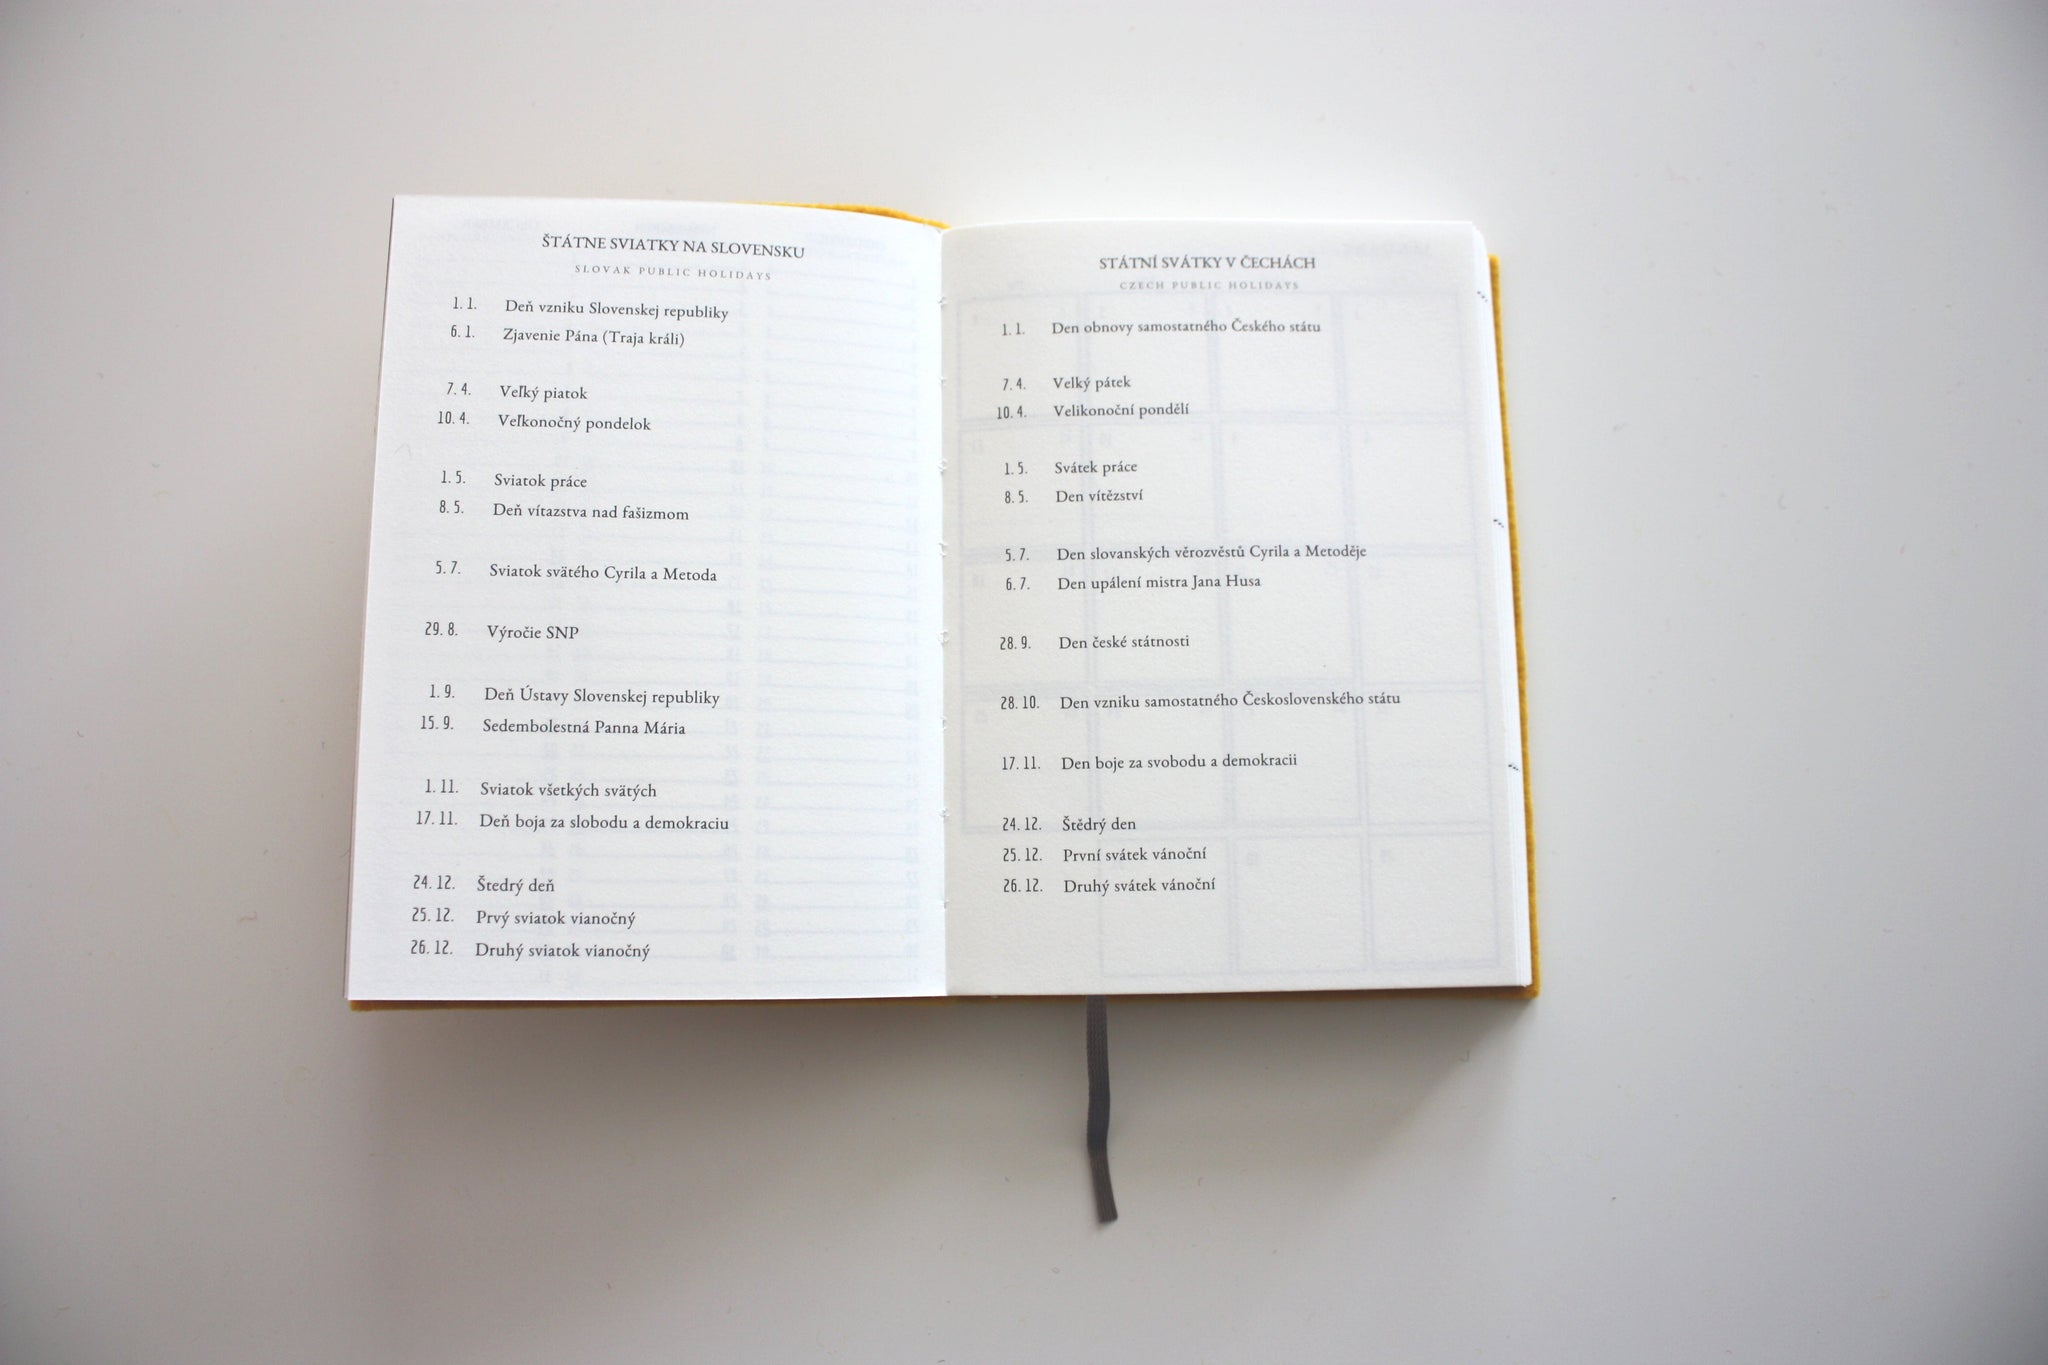 ŠTÁTNE SVIATKY NA SLOVENSKU
SLOVAK PUBLIC HOLIDAYS
1. 1. Deň vzniku Slovenskej republiky
6. 1. Zjavenie Pána (Traja králi)
7. 4. Veľký piatok
10. 4. Veľkonočný pondelok
1. 5. Sviatok práce
8. 5. Deň vítazstva nad fašizmom
5. 7. Sviatok svätého Cyrila a Metoda
29. 8. Výročie SNP
1. 9. Deň Ústavy Slovenskej republiky
15. 9. Sedembolestná Panna Mária
1. 11. Sviatok všetkých svätých
17. 11. Deň boja za slobodu a demokraciu
24. 12. Štedrý deň
25. 12. Prvý sviatok vianočný
26. 12. Druhý sviatok vianočný
STÁTNÍ SVÁTKY V ČECHÁCH
CZECH PUBLIC HOLIDAYS
1. 1. Den obnovy samostatného Českého státu
7. 4. Velký pátek
10. 4. Velikonoční pondělí
1. 5. Svátek práce
8. 5. Den vítězství
5. 7. Den slovanských věrozvěstů Cyrila a Metoděje
6. 7. Den upálení mistra Jana Husa
28. 9. Den české státnosti
28. 10. Den vzniku samostatného Československého státu
17. 11. Den boje za svobodu a demokracii
24. 12. Štědrý den
25. 12. První svátek vánoční
26. 12. Druhý svátek vánoční